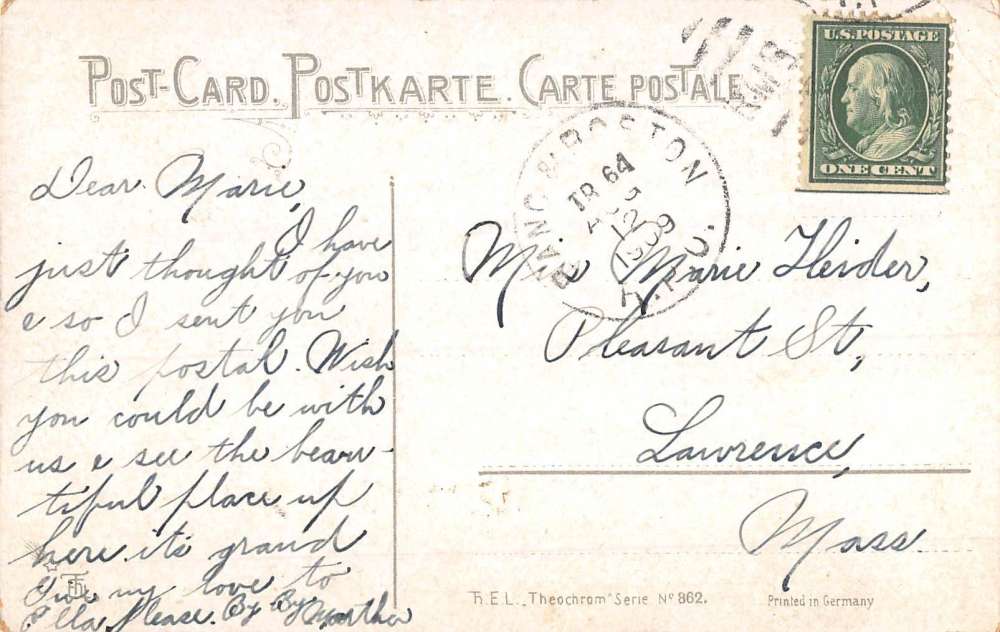 POST-CARD. POSTKARTE. CARTE POSTALE
U.S. POSTAGE
ONE CENT
BANG & BOSTON
TR 64
12
1909
R.P.O.
RMS
Dear Marie,
I have
just thought of you
& so I sent you
this postal. Wish
you could be with
us & see the beau-
tiful place up
here. its grand
Give my love to
Ella Please. By By Martha
Mrs Marie Heider,
Pleasant St,
Lawrence,
Mass
T.H.E.L. „Theochrom" Serie Nº 862.
Printed in Germany